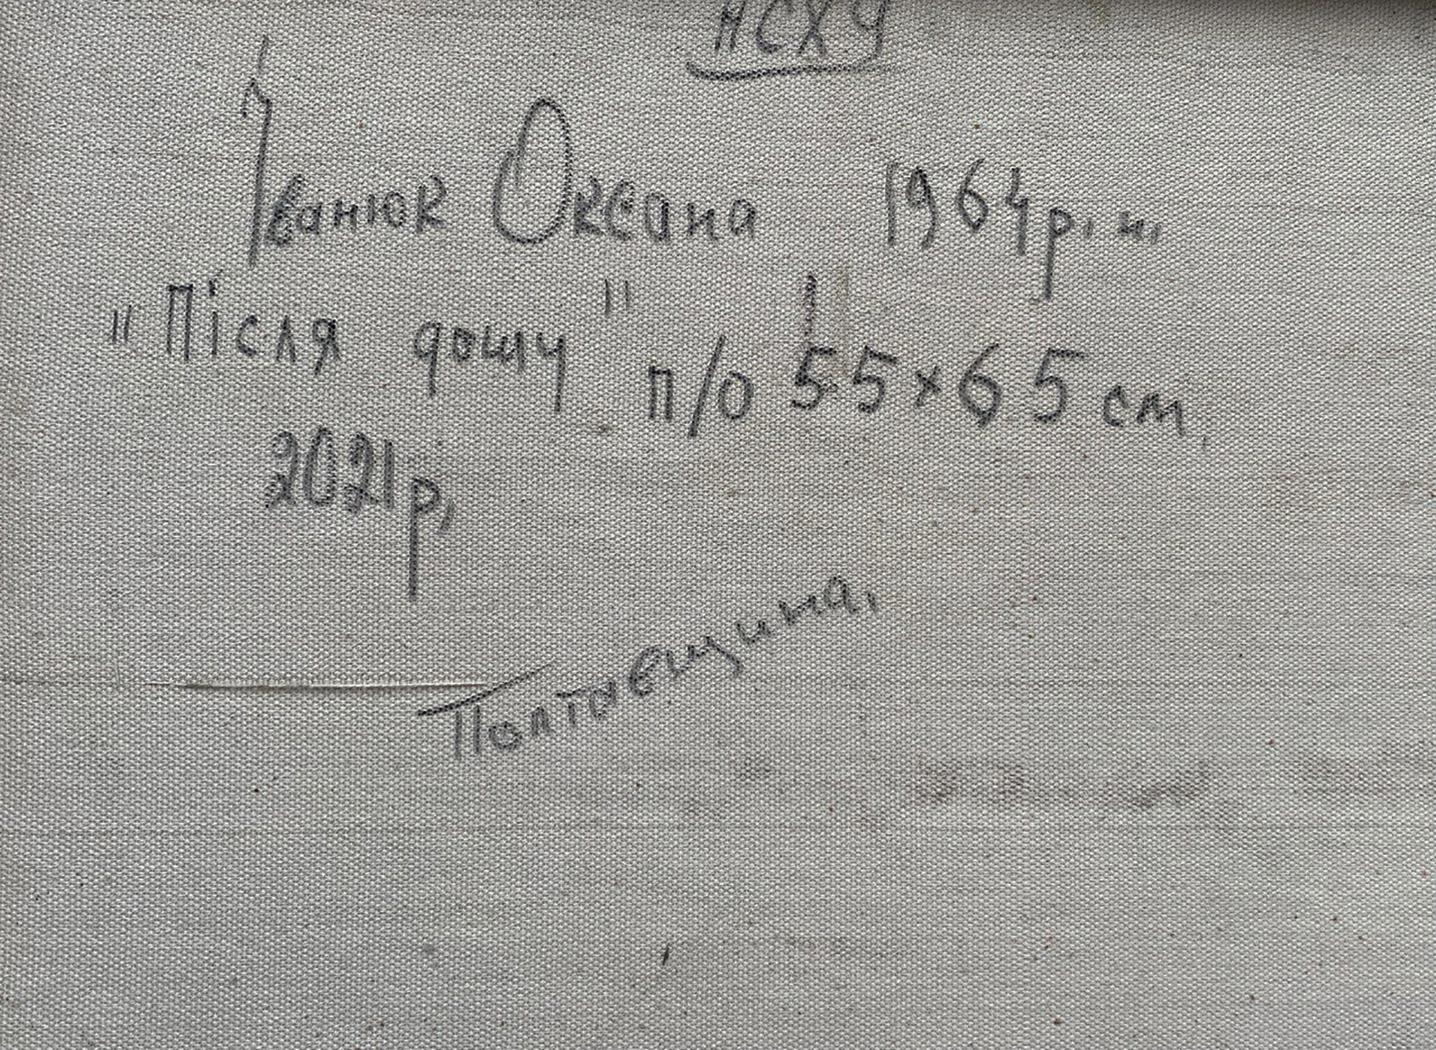 НСХУ
Іванюк Оксана 1964р.н.
"Після дощу" п/о 55×65 см.
2021р.
Полтавщина.